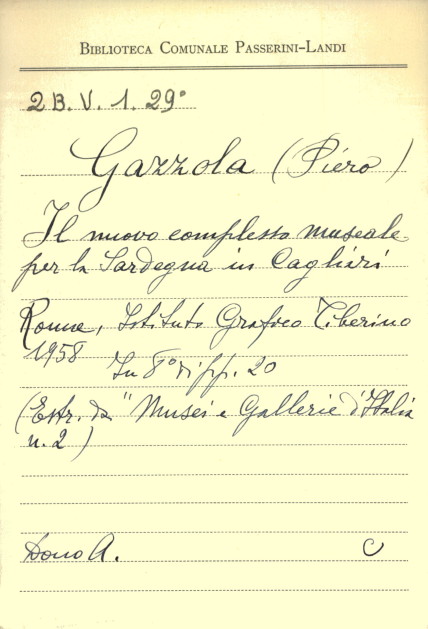 BIBLIOTECA COMUNALE PASSERINI-LANDI
2 B. V. 1. 29°
Gazzola (Piero)
Il nuovo complesso museale
per la Sardegna in Cagliari
Roma, Istituto Grafico Tiberino
1958 In 8° di pp. 20
(Estr. da " Musei e Gallerie d'Italia
n. 2)
Dono A. C